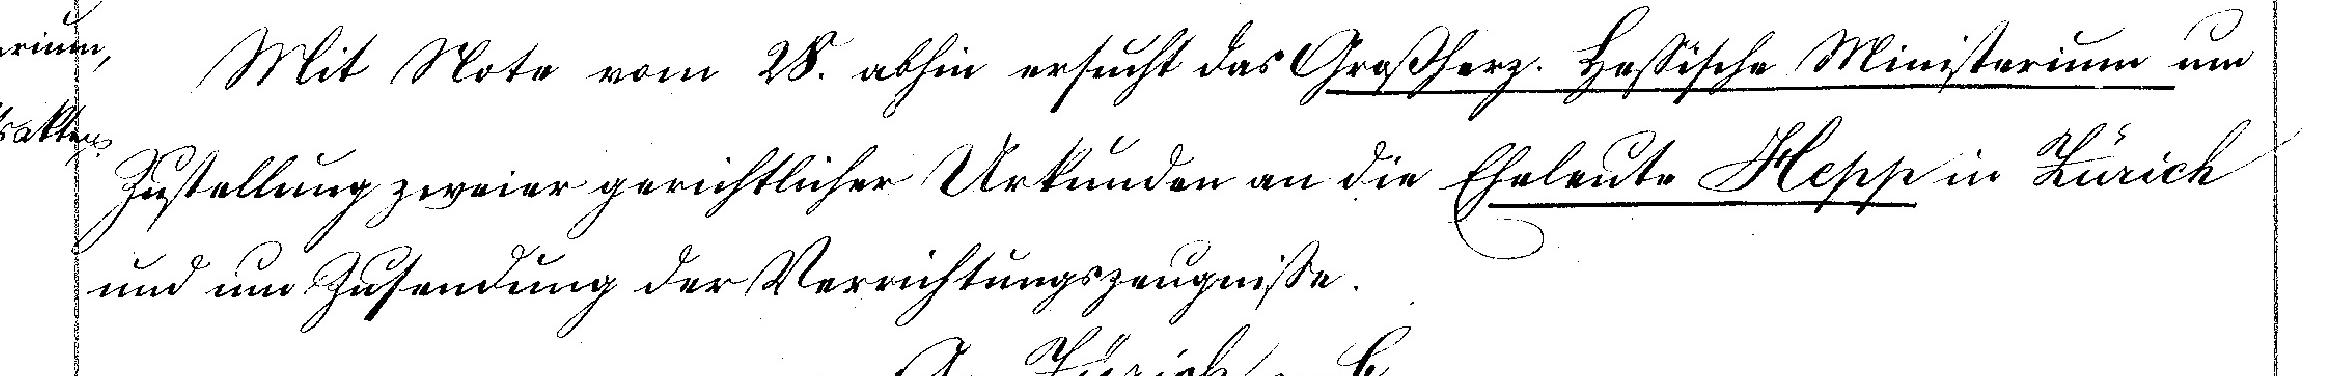 Mit Note vom 28. abhin ersucht das Großherz. Hessische Ministerium um
Zustellung zweier gerichtlicher Urkunden an die Eheleute Hepp in Zürich
und um Zusendung der Verrichtungszeugnisse.